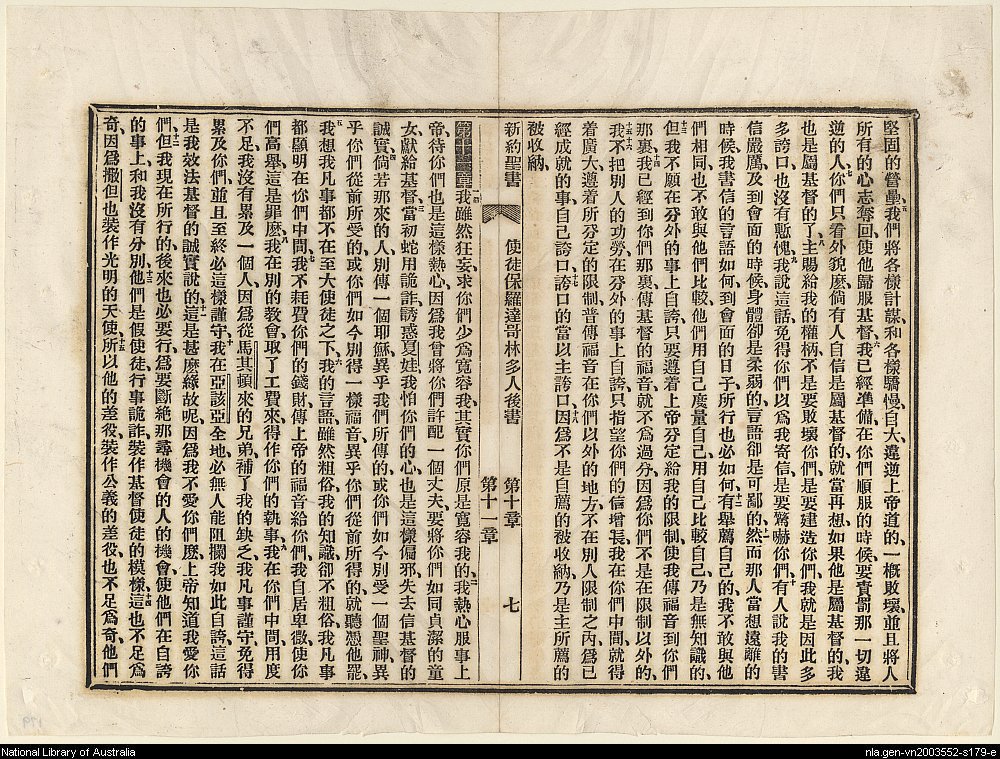 堅固的營壘、我們將各樣計謀、和各樣驕慢自大、違逆上帝道的、一概敗壞、並且將人
所有的心志奪回、使他歸服基督、我已經準備、在你們順服的時候、要責罰那一切違
逆的人、你們只看外貌麼、倘有人自信是屬基督的、就當再想、如果他是屬基督的、我
也是屬基督的了、主賜給我的權柄、不是要敗壞你們、是要建造你們、我就是因此多
多誇口、也沒有慙愧、我說這話、免得你們以爲我寄信、是要驚嚇你們、有人說我的書
信嚴厲、及到會面的時候、身體卻是柔弱的、言語卻是可鄙的、然而那人當想、遠離的
時候、我書信的言語如何、到會面的日子、所行也必如何、有舉薦自己的、我不敢與他
們相同、也不敢與他們比較、他們用自己度量自己、用自己比較自己、乃是無知識的、
但我不願在分外的事上自誇、只要遵着上帝分定給我的限制、使我傳福音到你們
那裏、我已經到你們那裏傳基督的福音、就不爲過分、因爲你們不是在限制以外的、
我不把別人的功勞、在分外的事上自誇、只指望你們的信增長、我在你們中間、就得
着廣大、遵着所分定的限制、普傳福音、在你們以外的地方、不在別人限制之內、爲已
經成就的事自己誇口、誇口的當以主誇口、因爲不是自薦的被收納、乃是主所薦的
被收納、
新約聖書 使徒保羅達哥林多人後書 第十章 第十一章 七
第十一章 我雖然狂妄、求你們少爲寬容我、其實你們原是寬容我的、我熱心服事上
帝、待你們也是這樣熱心、因爲我曾將你們許配一個丈夫、要將你們如同貞潔的童
女、獻給基督、當初蛇用詭詐誘惑夏娃、我怕你們的心也是這樣偏邪、失去信基督的
誠實、倘若那來的人、別傳一個耶穌、異乎我們所傳的、或你們如今別受一個聖神、異
乎你們從前所受的、或你們如今別得一樣福音、異乎你們從前所得的、就聽憑他罷、
我想我凡事都不在至大使徒之下、我的言語雖然粗俗、我的知識卻不粗俗、我凡事
都顯明在你們中間、我不耗費你們的錢財、傳上帝的福音給你們、我自居卑微、使你
們高舉、這是罪麼、我在別的教會取了工費來、得作你們的執事、我在你們中間、用度
不足、我沒有累及一個人、因爲從馬其頓來的兄弟、補了我的缺乏、我凡事謹守、免得
累及你們、並且至終必這樣謹守、我在亞該亞全地、必無人能阻攔我如此自誇、這話
是我效法基督的誠實說的、這是甚麼緣故呢、因爲我不愛你們麼、上帝知道我愛你
們、但我現在所行的、後來也必要行、爲要斷絕那尋機會的人的機會、使他們在自誇
的事上、和我沒有分別、他們是假使徒、行事詭詐、裝作基督使徒的模樣、這也不足爲
奇、因爲撒但也裝作光明的天使、所以他的差役、裝作公義的差役、也不足爲奇、他們
National Library of Australia
nla.gen-vn2003552-s179-e